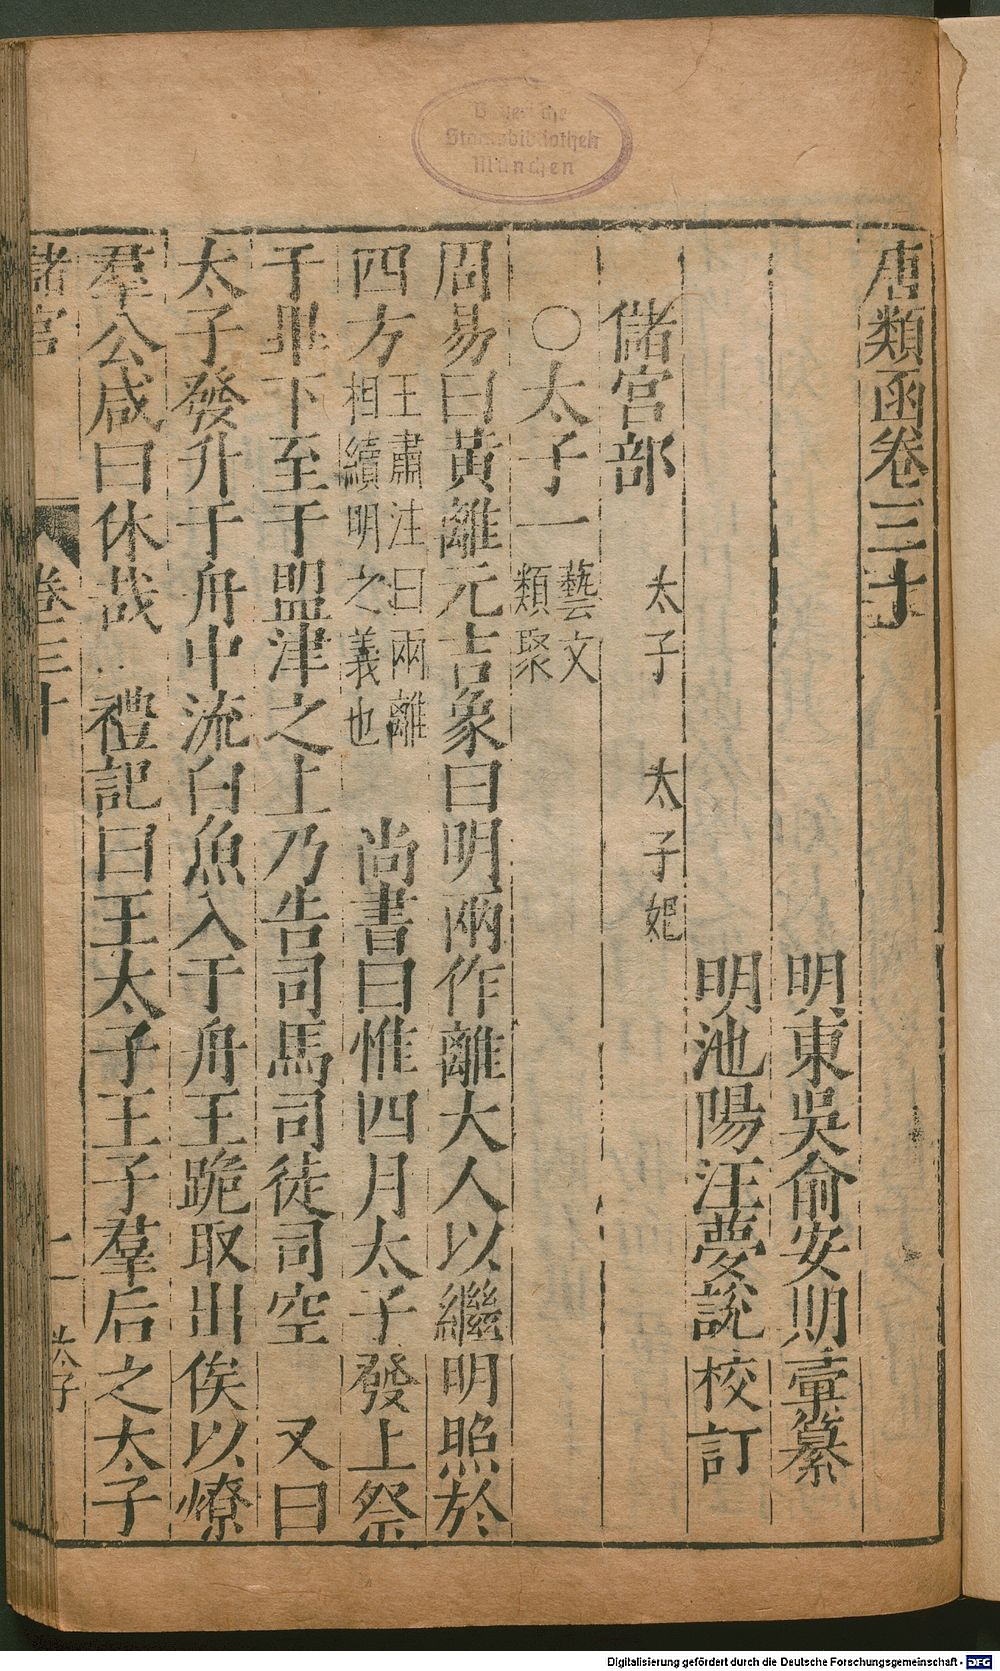 唐類函卷三十
明東吳俞安期彙纂
明池陽汪夢説校訂
儲宮部 太子 太子妃
○太子一 藝文類聚
周易曰黃離元吉象曰明兩作離大人以繼明照於
四方 王肅注曰兩離相續明之義也 尚書曰惟四月太子發上祭
于畢下至于盟津之上乃告司馬司徒司空 又曰
太子發升于舟中流白魚入于舟王跪取出俟以燎
羣公咸曰休哉 禮記曰王太子王子羣后之太子
儲宮 卷三十 一 太子
Bayerische
Staatsbibliothek
München
Digitalisierung gefördert durch die Deutsche Forschungsgemeinschaft - DFG